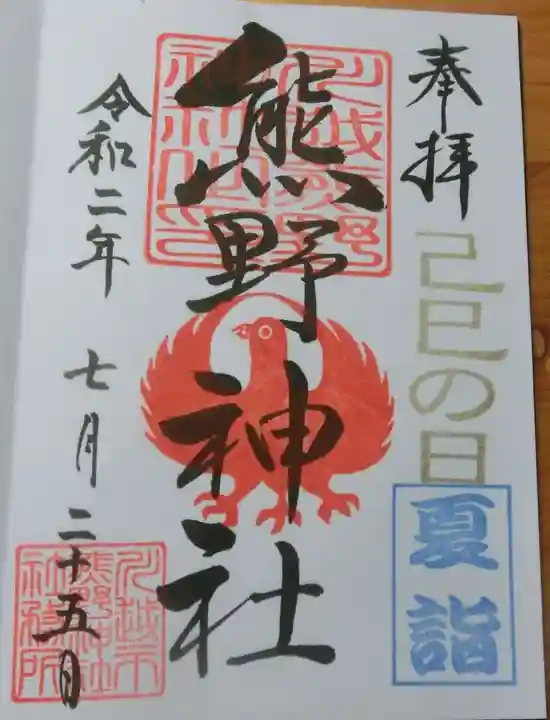 奉拝
己巳の日
夏詣
熊野神社
川越熊野神社之印
令和二年 七月 二十五日
川越市熊野神社社務所